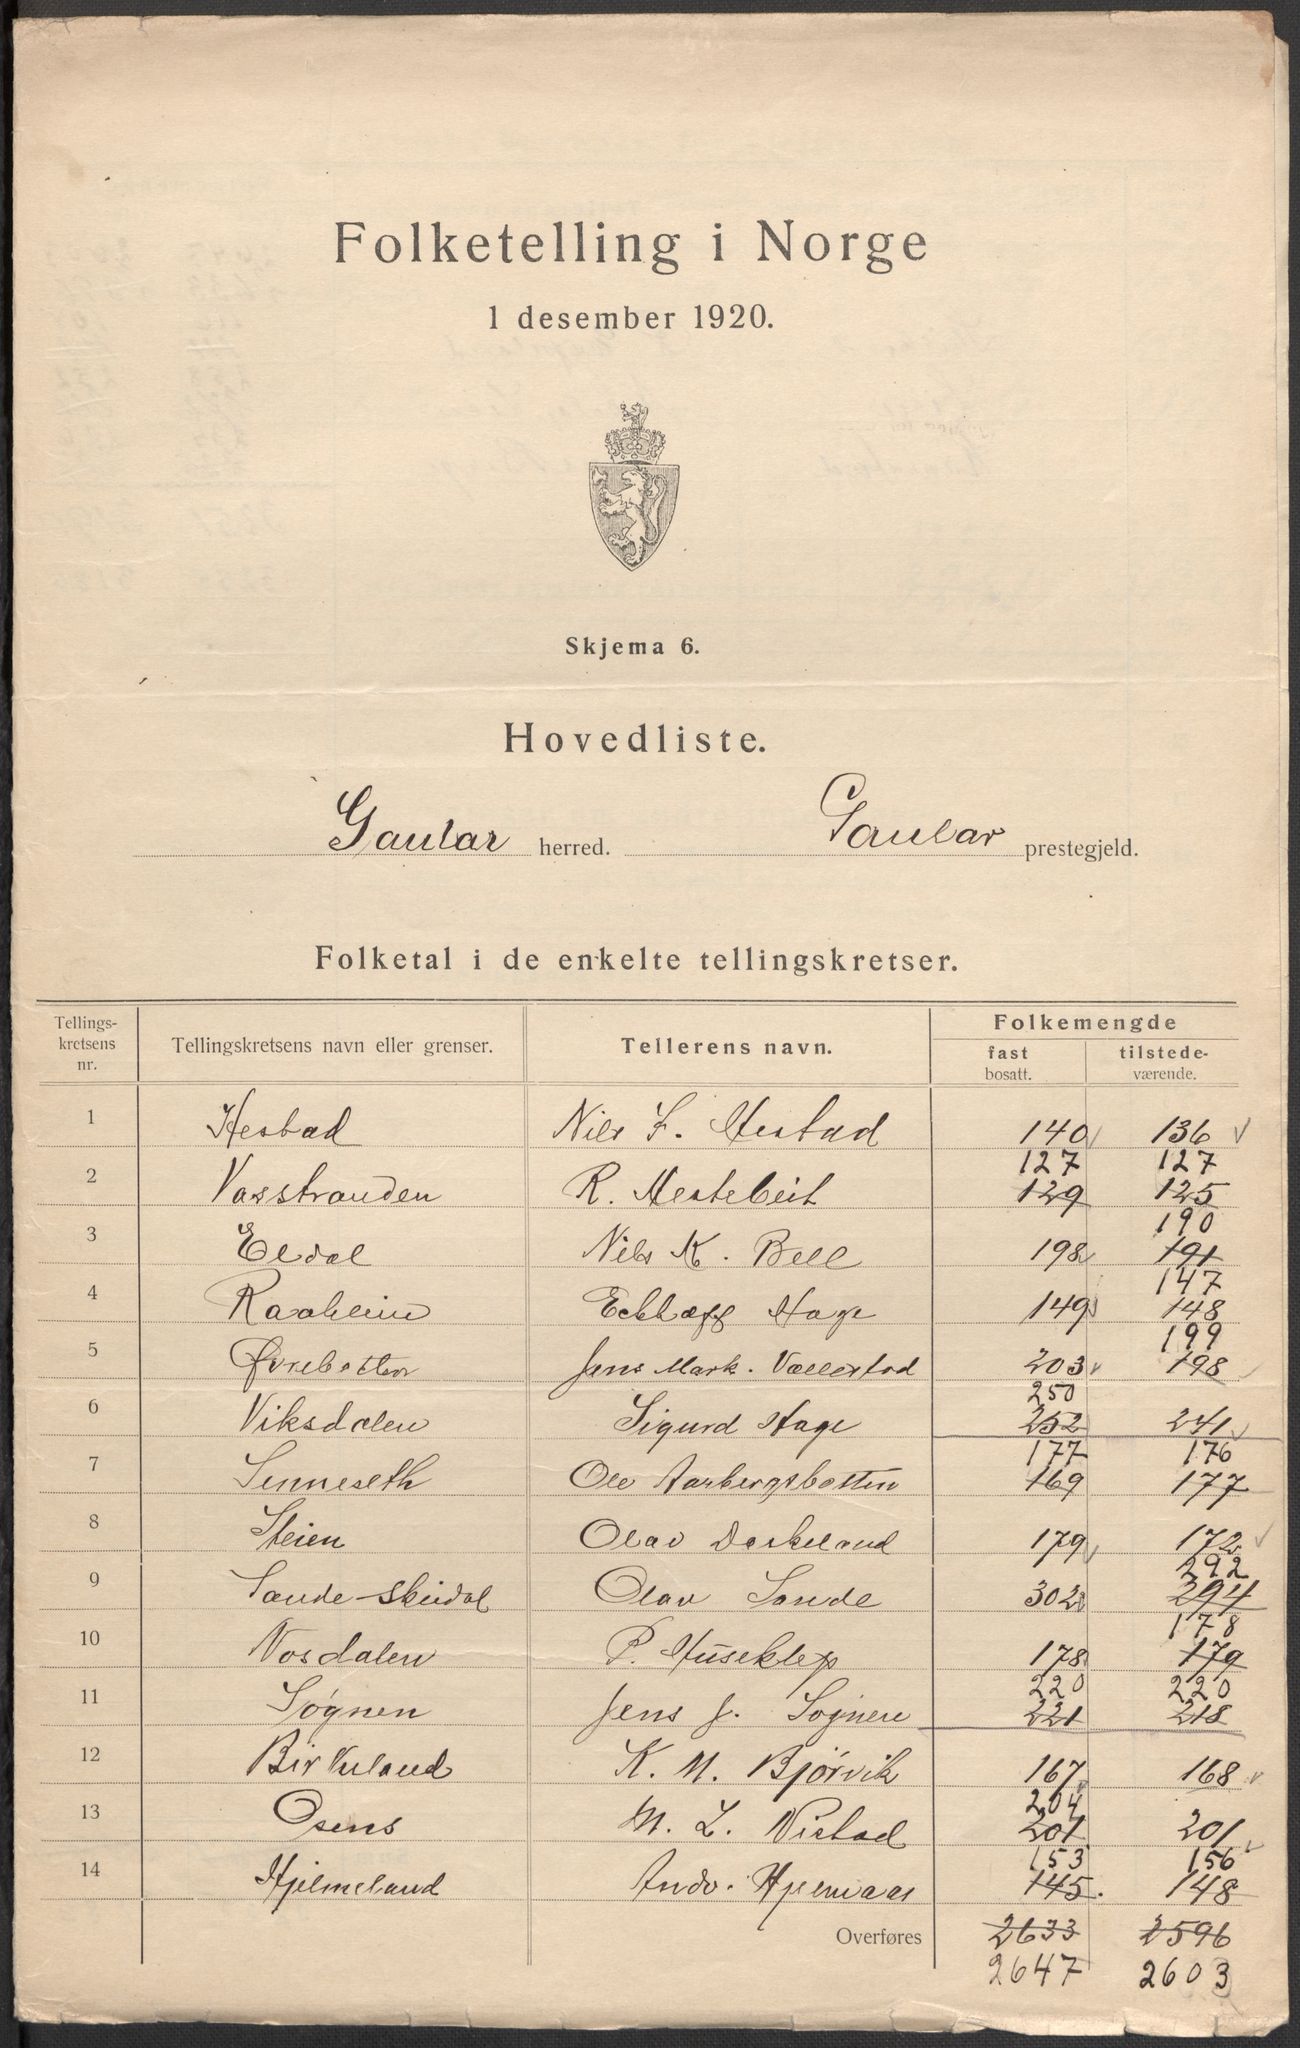 Folketelling i Norge
1 desember 1920.
Skjema 6.
Hovedliste.
Gaular herred. Gaular prestegjeld.
Folketal i de enkelte tellingskretser.
Tellings-kretsens nr. Tellingskretsens navn eller grenser. Tellerens navn. Folkemengde
fast bosatt. tilstede-værende.
1 Hestad Nils F. Hestad 140 136
127 127
2 Vasstranden R. Mestebeit 129 125
190
3 Eldal Nils K. Bell 198 191
147
4 Raaheim Hage 149 148
199
5 Øvrebotten Jens Mark. Vallestad 203 198
250
6 Viksdalen Sigurd Hage 252 241
177 176
7 Senneseth Ole Aarbergsbotten 169 177
8 Steien Olav Dorkeland 179 172
292
9 Sande-Skudal Olav Sande 302 294
178
10 Nosdalen P. Huseklep 178 179
220 220
11 Søgnen Jens J. Sognen 221 218
12 Birkeland K. M. Bjørvik 167 168
204
13 Osens M. L. Vistad 201 201
153 156
14 Hjelmeland Andr. Hjelmaas 145 148
Overføres 2633 2596
2647 2603